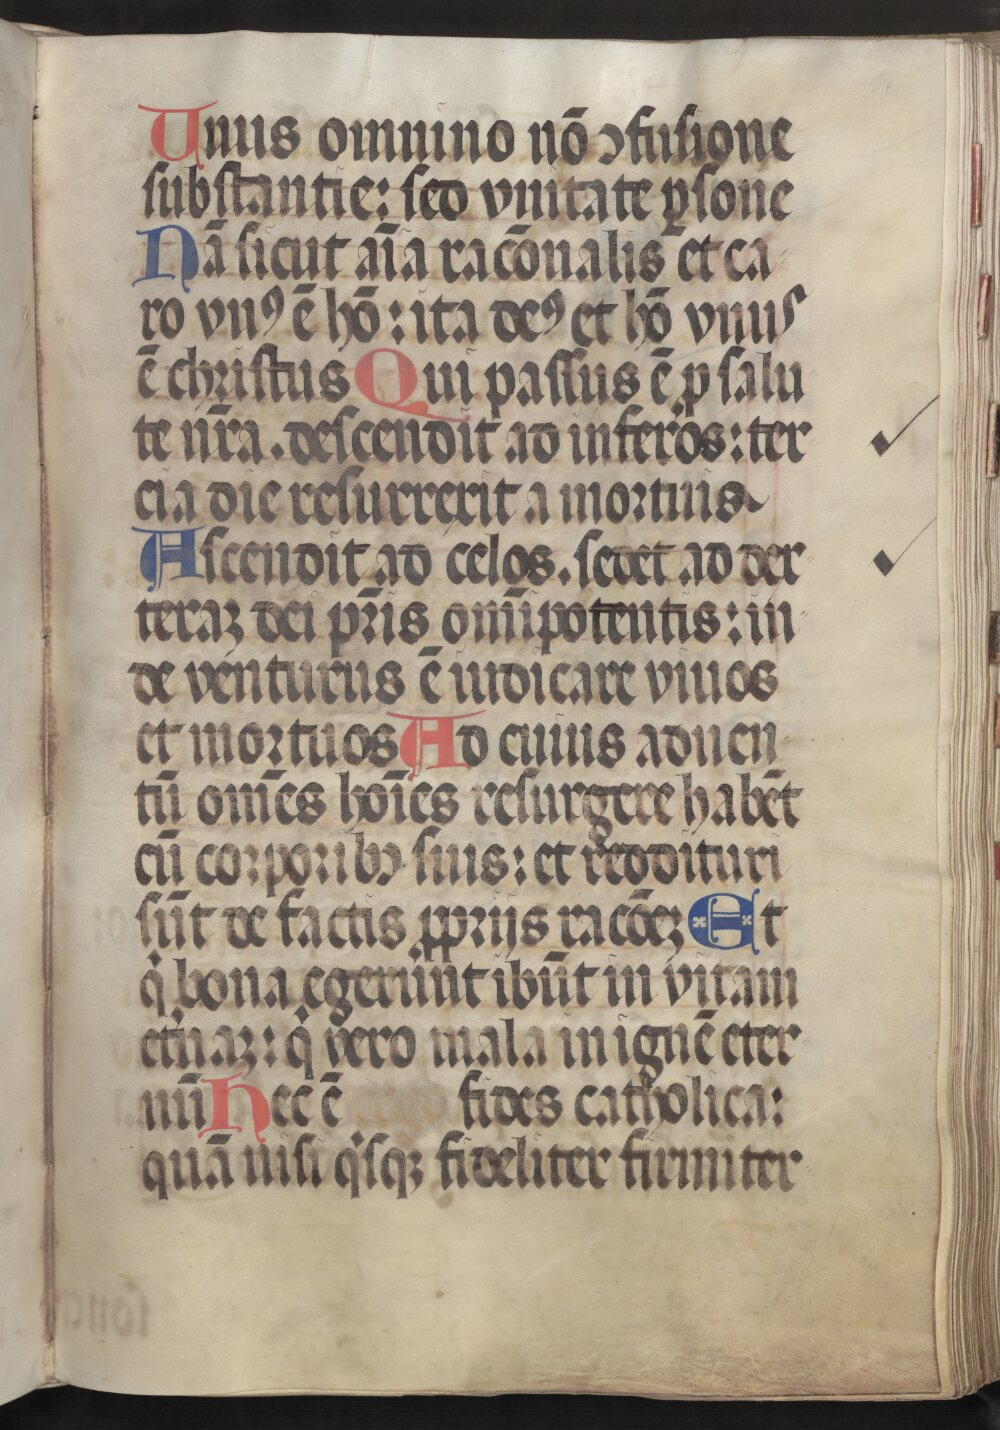 Unus omnino nō ↄfusione
substantie: sed vnitate ꝑsone
Nā sicut aīa racōnalis et ca
ro vnꝰ ē hō: ita deꝰ et hō vnus
ē christus Qui passus ē ꝓ salu
te nr̄a. descendit ad inferos: ter
cia die resurrexit a mortuis
Ascendit ad celos. sedet ad dex
teraꝫ dei pr̄is om̄ipotentis: in
de venturus ē iudicare viuos
et mortuos Ad cuius aduen
tū om̄es hoīes resurgere habēt
cū corporibꝫ suis: et reddituri
sūt de factis ꝓprijs racōeꝫ Et
qͥ bona egerūnt ibūt in vitam
et̄naꝫ: qͥ vero mala in ignē eter
nū Hec ē fides catholica:
quā nisi qͥsqꝫ fideliter firmiter